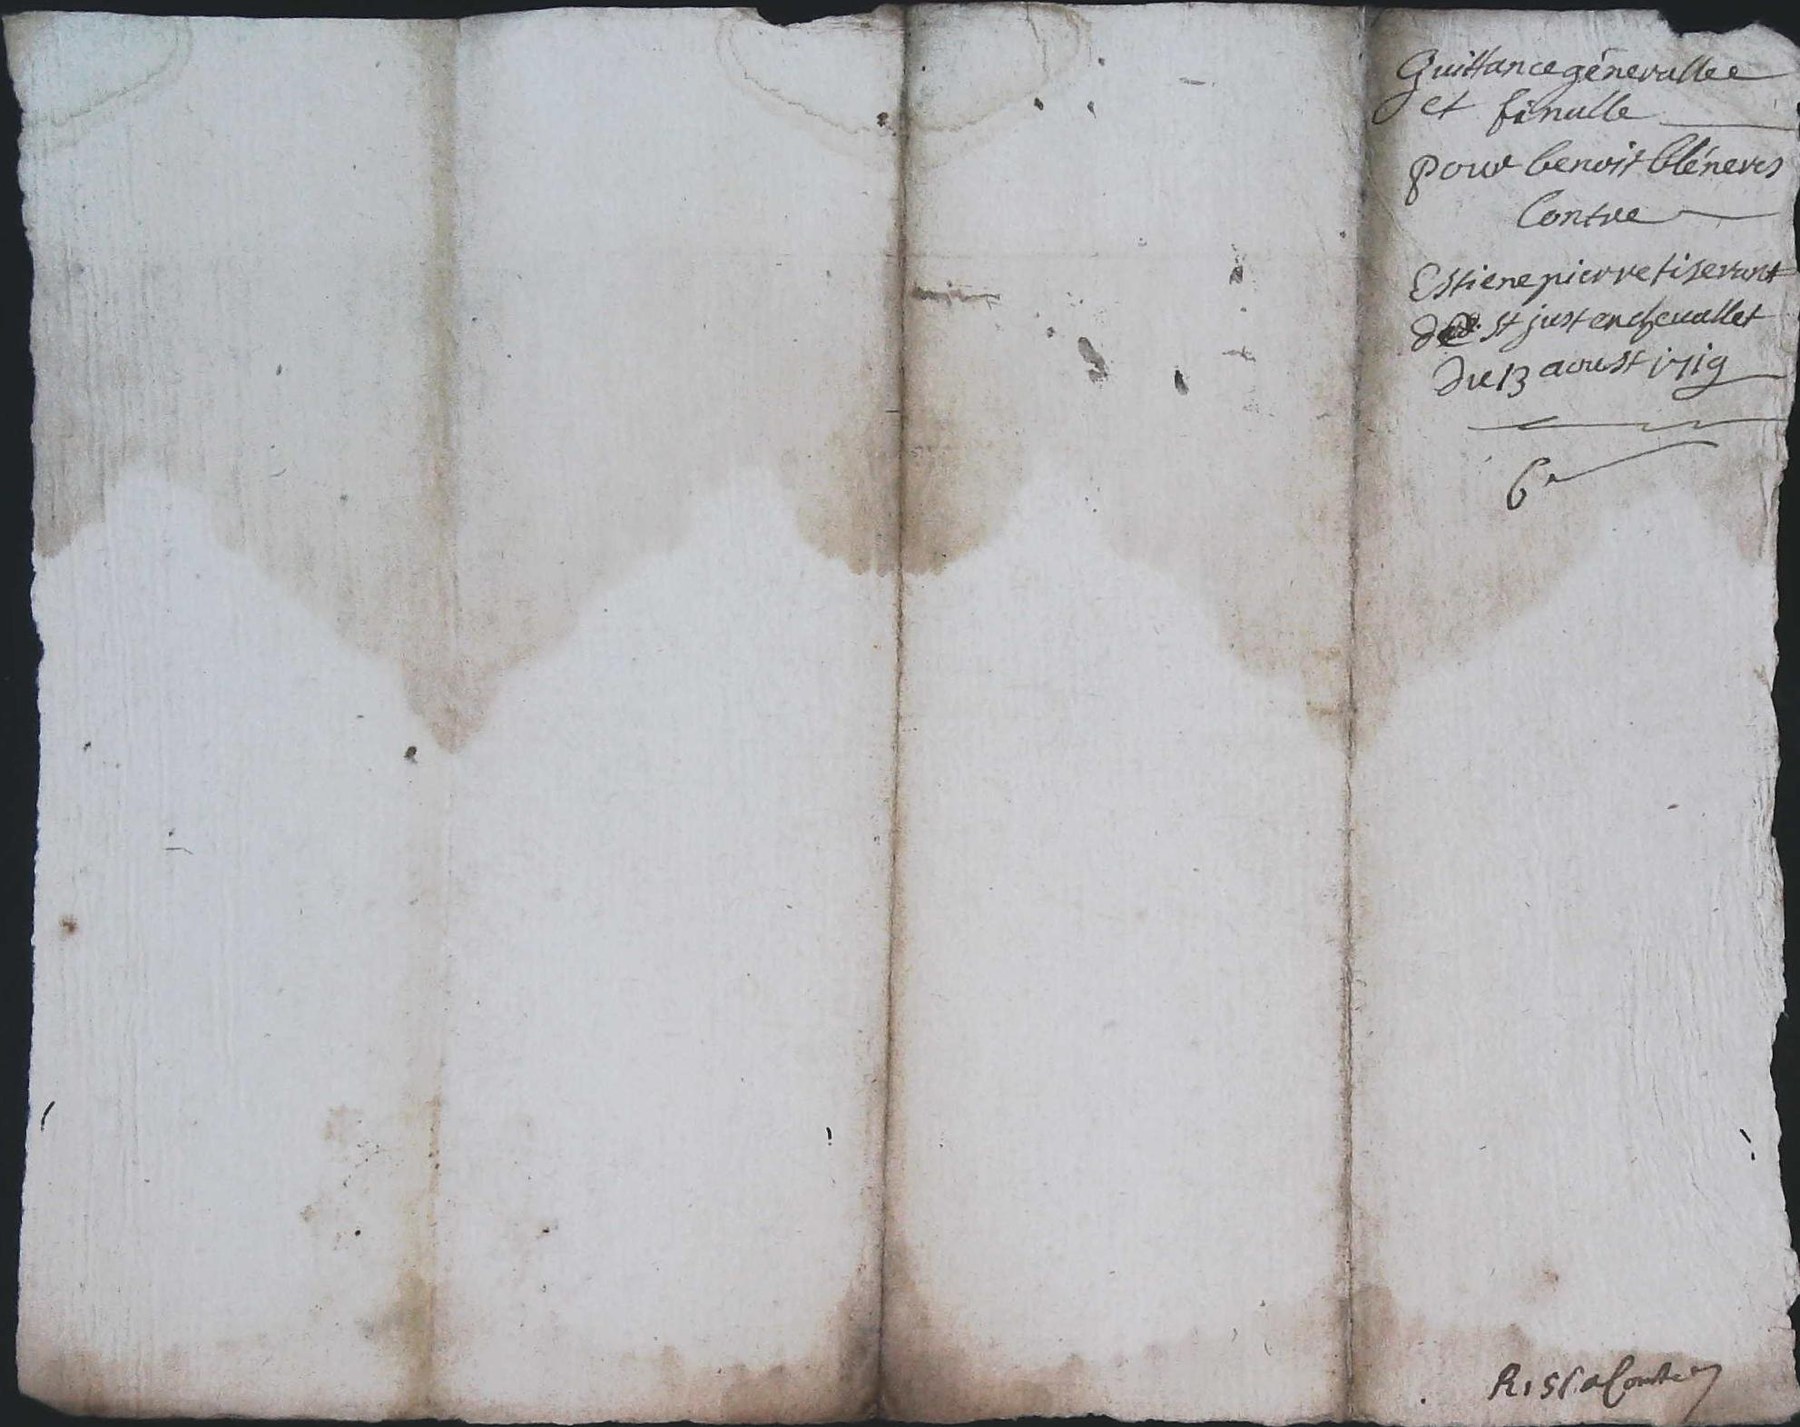 Quittance génerallee
et finalle
pour benoit bléneres
Contre
Estiene pierre tiserant
de st just en chevallet
du 13 aoust 1719
6e